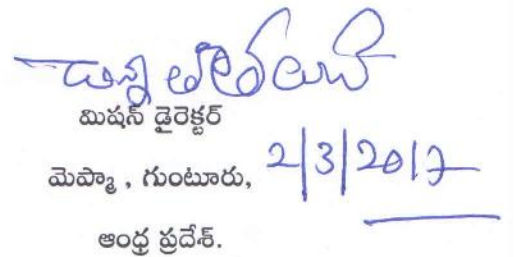 మిషన్ డైరెక్టర్
మెప్మా , గుంటూరు, 2/3/2017
ఆంధ్ర ప్రదేశ్.